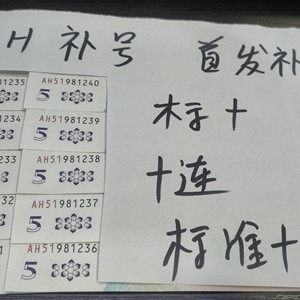 H 补号 首发补
标十
十连
标准十
1235
AH51981240
5
1234
AH51981239
5
233
AH51981238
5
32
AH51981237
5
1
AH51981236
5